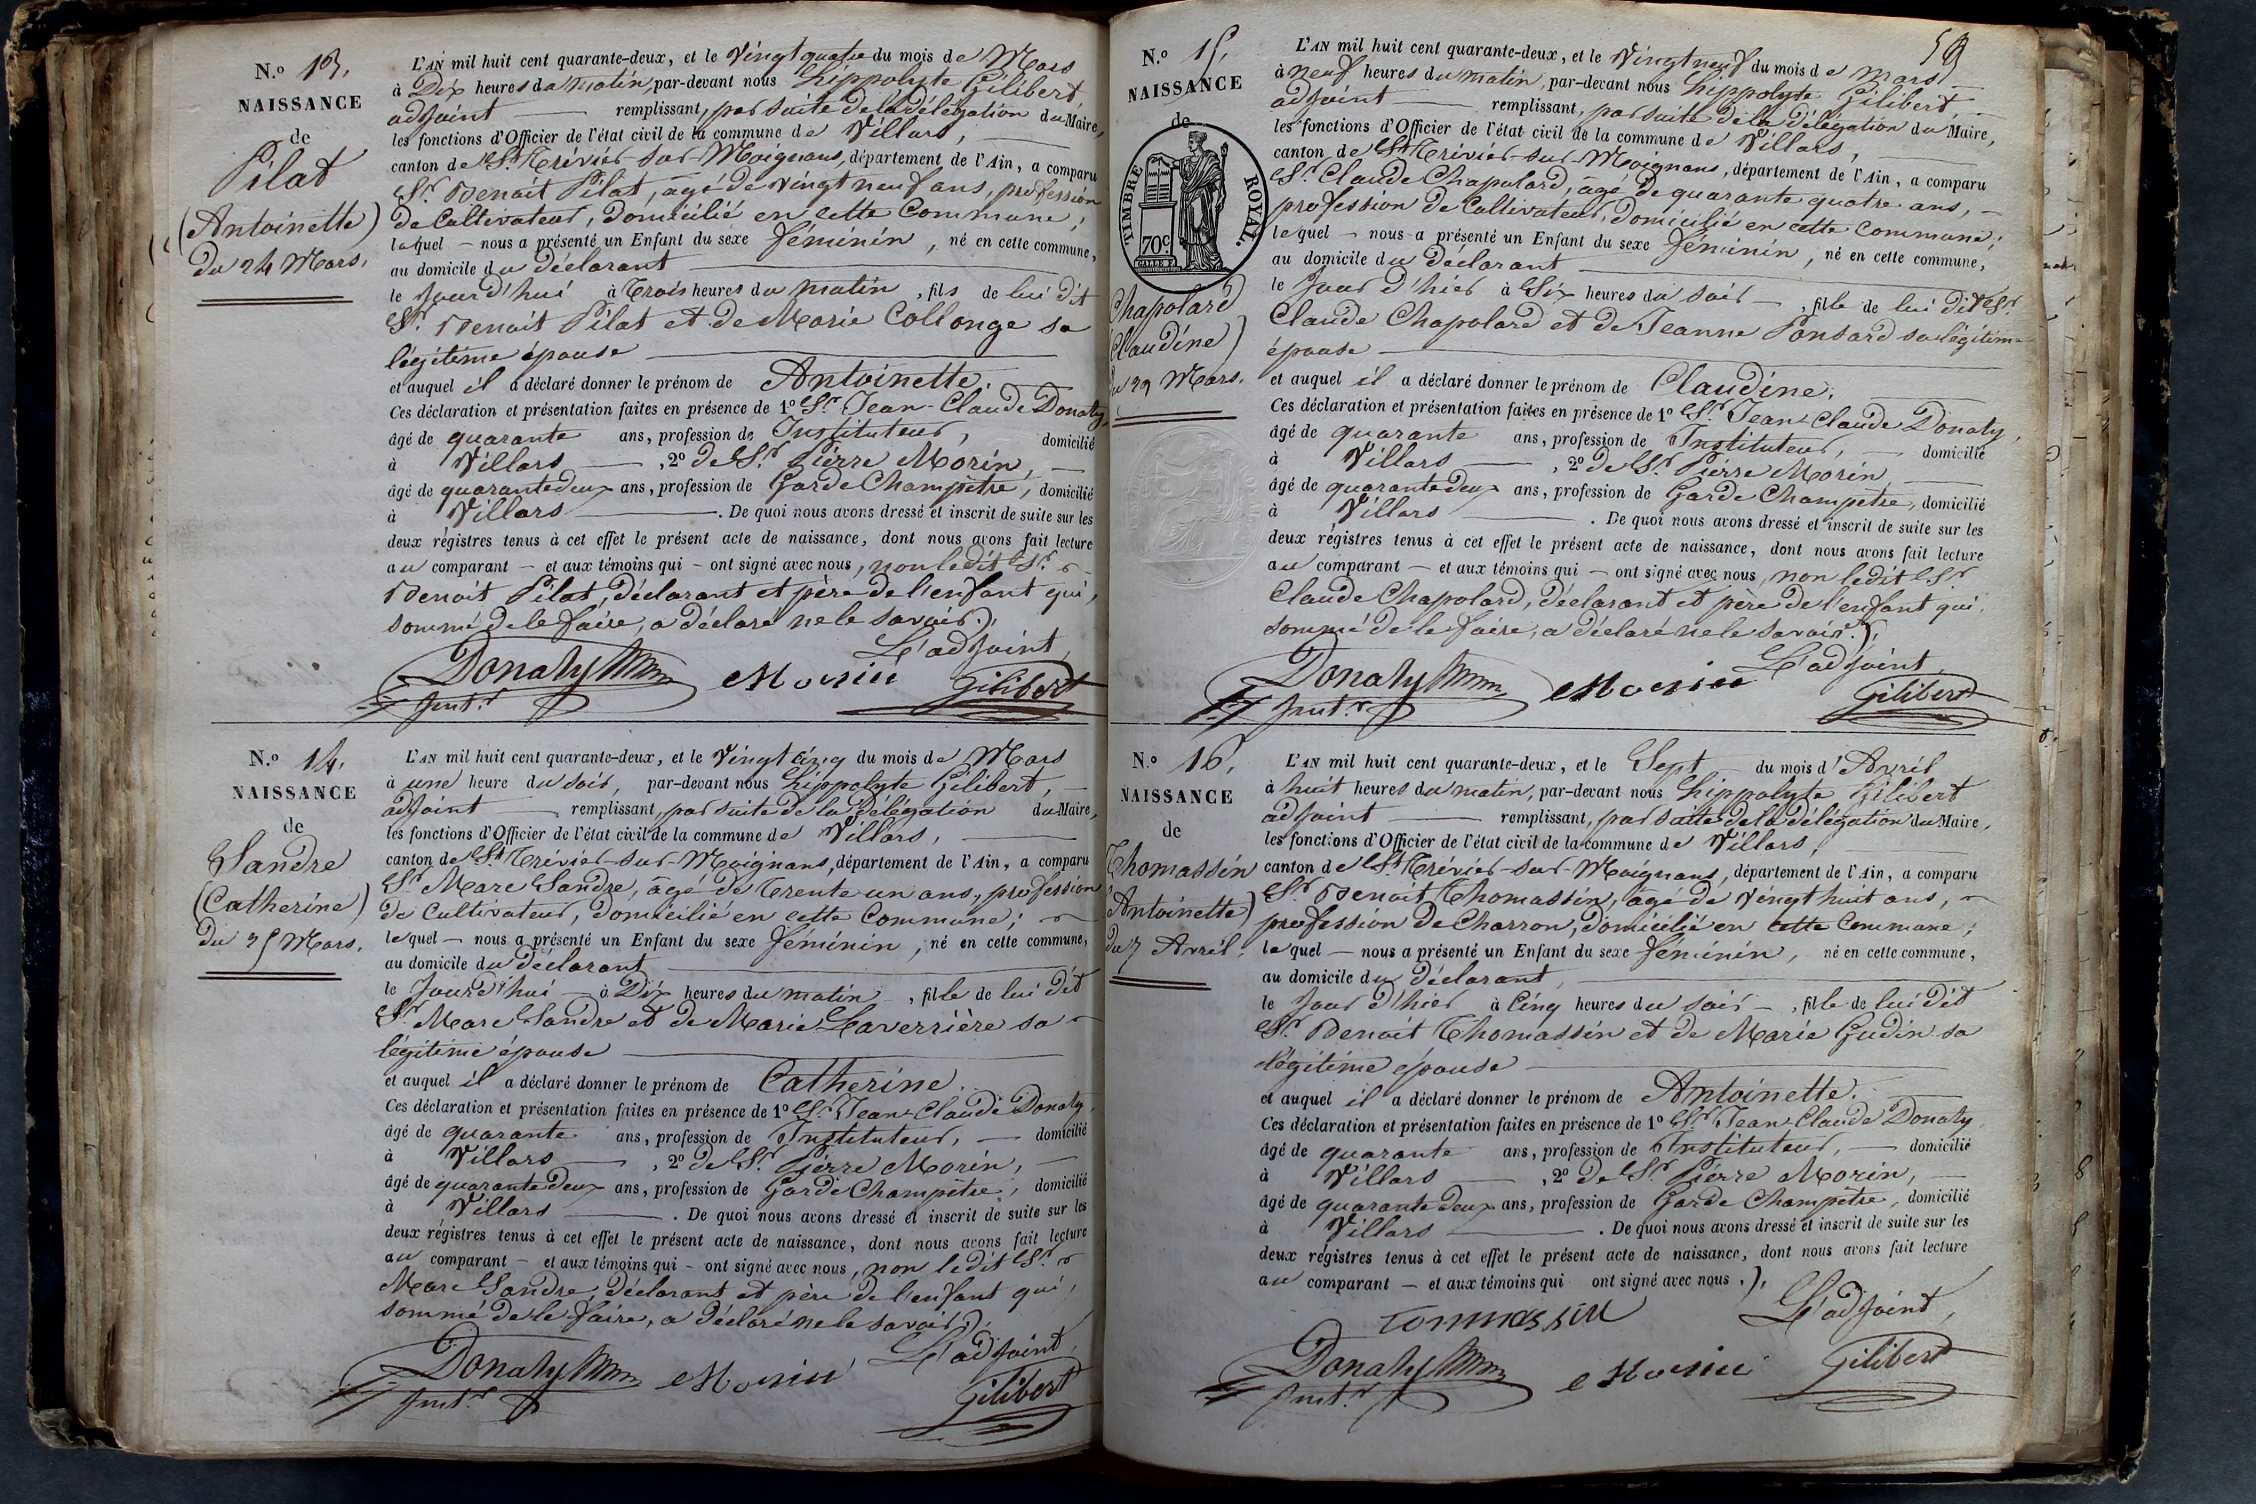 N.o 13.
NAISSANCE
de
Pilat
(Antoinette)
du 24 Mars.
L'AN mil huit cent quarante-deux, et le Vingt quatre du mois de Mars
à Dix heures du matin, par-devant nous Hippolyte Gilibert,
adjoint remplissant, par suite de la délégation du Maire,
les fonctions d'Officier de l'état civil de la commune de Villars,
canton de St. Trévier-sur-Moignans, département de l'Ain, a comparu
Sr. Benoit Pilat, âgé de vingt neuf ans, profession
de Cultivateur, domicilié en cette Commune,
lequel nous a présenté un Enfant du sexe féminin, né en cette commune,
au domicile du déclarant
le Jour d'hui à Trois heures du matin, fils de lui dit
Sr. Benoit Pilat et de Marie Collonge sa
légitime épouse
et auquel il a déclaré donner le prénom de Antoinette.
Ces déclaration et présentation faites en présence de 1o Sr. Jean-Claude Donaty,
âgé de quarante ans, profession de Instituteur, domicilié
à Villars, 2o de Sr. Pierre Morin,
âgé de quarante deux ans, profession de Garde Champêtre, domicilié
à Villars. De quoi nous avons dressé et inscrit de suite sur les
deux régistres tenus à cet effet le présent acte de naissance, dont nous avons fait lecture
au comparant - et aux témoins qui - ont signé avec nous, non ledit Sr.
Benoit Pilat, déclarant et père de l'enfant qui,
sommé de le faire, a déclaré ne le savoir.
L'adjoint,
Donaty Morin Gilibert
Instr.
N.o 14.
NAISSANCE
de
Sandre
(Catherine)
du 25 Mars.
L'AN mil huit cent quarante-deux, et le Vingt cinq du mois de Mars
à une heure du soir, par-devant nous Hippolyte Gilibert,
adjoint remplissant, par suite de la délégation du Maire,
les fonctions d'Officier de l'état civil de la commune de Villars,
canton de St. Trévier-sur-Moignans, département de l'Ain, a comparu
Sr. Marc Sandre, âgé de Trente un ans, profession
de Cultivateur, domicilié en cette Commune;
lequel - nous a présenté un Enfant du sexe féminin, né en cette commune,
au domicile du déclarant
le Jour d'hui à Dix heures du matin, fille de lui dit
Sr. Marc Sandre et de Marie Laverrière sa
légitime épouse
et auquel il a déclaré donner le prénom de Catherine.
Ces déclaration et présentation faites en présence de 1o Sr. Jean-Claude Donaty,
âgé de quarante ans, profession de Instituteur, domicilié
à Villars, 2o de Sr. Pierre Morin,
âgé de quarante deux ans, profession de Garde Champêtre, domicilié
à Villars. De quoi nous avons dressé et inscrit de suite sur les
deux régistres tenus à cet effet le présent acte de naissance, dont nous avons fait lecture
au comparant - et aux témoins qui - ont signé avec nous, non ledit Sr.
Marc Sandre, déclarant et père de l'enfant qui,
sommé de le faire, a déclaré ne le savoir.
L'adjoint,
Donaty Morin Gilibert
Instr.
N.o 15.
NAISSANCE
de
TIMBRE ROYAL.
70c.
Chapolard
(Claudine)
du 29 Mars.
L'AN mil huit cent quarante-deux, et le Vingt neuf du mois de mars
à neuf heures du matin, par-devant nous Hippolyte Gilibert
adjoint remplissant, par suite de la délégation du Maire,
les fonctions d'Officier de l'état civil de la commune de Villars,
canton de St. Trévier-sur-Moignans, département de l'Ain, a comparu
Sr. Claude Chapolard, âgé de quarante quatre ans,
profession de Cultivateur, domicilié en cette Commune;
lequel - nous a présenté un Enfant du sexe féminin, né en cette commune,
au domicile du déclarant
le Jour d'hier à Six heures du soir, fille de lui dit Sr.
Claude Chapolard et de Jeanne Ponsard sa légitime
épouse
et auquel il a déclaré donner le prénom de Claudine.
Ces déclaration et présentation faites en présence de 1o Sr. Jean-Claude Donaty,
âgé de quarante ans, profession de Instituteur, domicilié
à Villars, 2o de Sr. Pierre Morin
âgé de quarante deux ans, profession de Garde Champêtre, domicilié
à Villars. De quoi nous avons dressé et inscrit de suite sur les
deux régistres tenus à cet effet le présent acte de naissance, dont nous avons fait lecture
au comparant - et aux témoins qui - ont signé avec nous, non ledit Sr
Claude Chapolard, déclarant et père de l'enfant qui,
sommé de le faire, a déclaré ne le savoir.
L'adjoint,
Donaty Morin Gilibert
Instr.
N.o 16.
NAISSANCE
de
Thomassin
(Antoinette)
du 7 Avril.
L'AN mil huit cent quarante-deux, et le Sept du mois d'Avril
à huit heures du matin, par-devant nous Hippolyte Gilibert
adjoint remplissant, par suite de la délégation du Maire,
les fonctions d'Officier de l'état civil de la commune de Villars,
canton de St. Trévier-sur-Moignans, département de l'Ain, a comparu
Sr. Benoit Thomassin, âgé de Vingt huit ans,
profession de Charron, domicilié en cette Commune;
lequel - nous a présenté un Enfant du sexe féminin, né en cette commune,
au domicile du déclarant,
le Jour d'hier à Cinq heures du soir, fille de lui dit
Sr. Benoit Thomassin et de Marie Gudin sa
légitime épouse
et auquel il a déclaré donner le prénom de Antoinette.
Ces déclaration et présentation faites en présence de 1o Sr. Jean-Claude Donaty
âgé de quarante ans, profession de Instituteur, domicilié
à Villars, 2o de Sr. Pierre Morin,
âgé de quarante deux ans, profession de Garde Champêtre, domicilié
à Villars. De quoi nous avons dressé et inscrit de suite sur les
deux régistres tenus à cet effet le présent acte de naissance, dont nous avons fait lecture
au comparant - et aux témoins qui ont signé avec nous.
Tommassin L'adjoint,
Donaty Morin Gilibert
Instr.